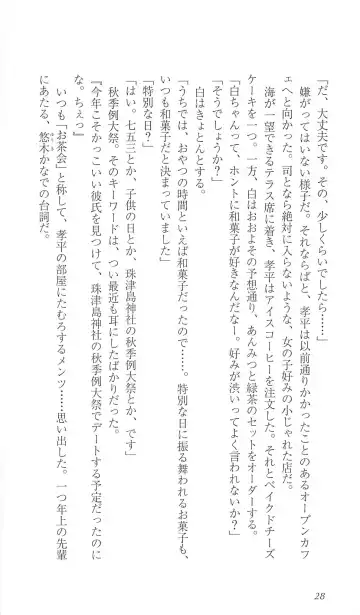 「だ、大丈夫です。その、少しくらいでしたら……」
嫌がってはいない様子だ。それならばと、孝平は以前通りかかったことのあるオープンカフ
ェへと向かった。司となら絶対に入らないような、女の子好みの小じゃれた店だ。
海が一望できるテラス席に着き、孝平はアイスコーヒーを注文した。それとベイクドチーズ
ケーキを一つ。一方、白はおおよその予想通り、あんみつと緑茶のセットをオーダーする。
「白ちゃんって、ホントに和菓子が好きなんだなー。好みが渋いってよく言われないか？」
「そうでしょうか？」
白はきょとんとする。
「うちでは、おやつの時間といえば和菓子だったので……。特別な日に振る舞われるお菓子も、
いつも和菓子だと決まっていました」
「特別な日？」
「はい。七五三とか、子供の日とか、珠津島神社の秋季例大祭とか、です」
秋季例大祭。そのキーワードは、つい最近も耳にしたばかりだった。
『今年こそかっこいい彼氏を見つけて、珠津島神社の秋季例大祭でデートする予定だったのに
な。ちぇっ』
いつも「お茶会」と称して、孝平の部屋にたむろするメンツ……思い出した。一つ年上の先輩
にあたる、悠木かなでの台詞だ。
はるき
28